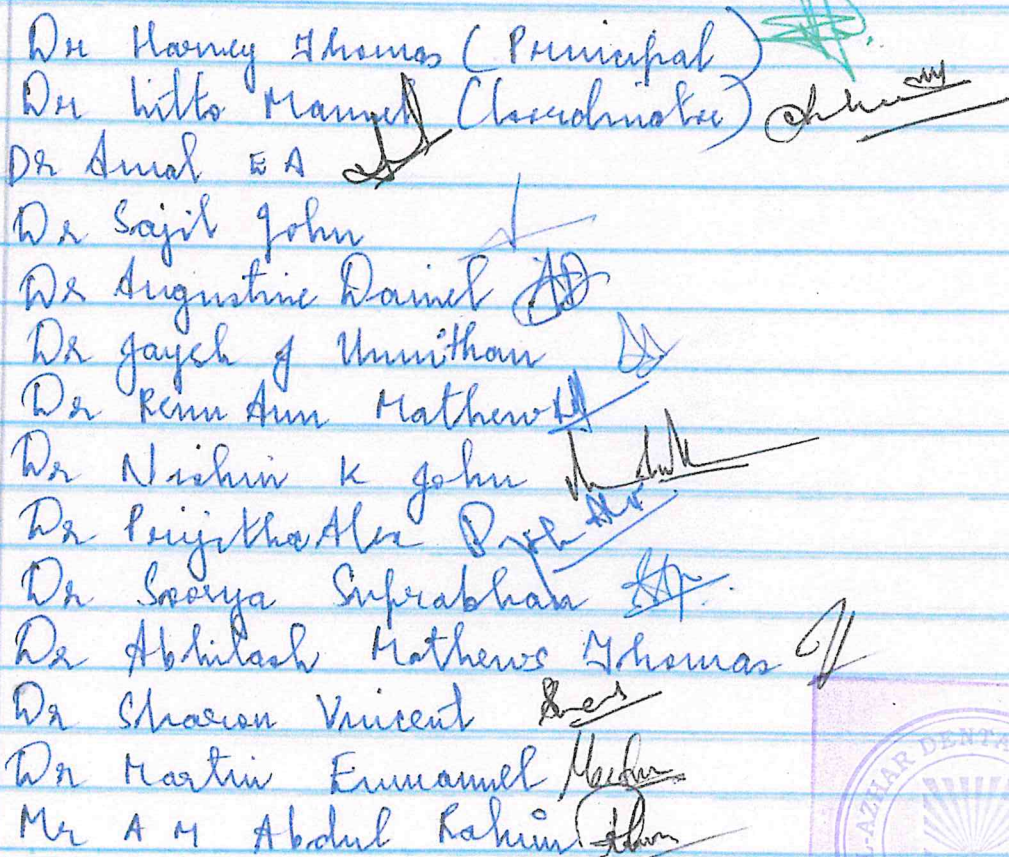 Dr Harvey Thomas (Principal)
Dr Litto Manuel (Coordinator)
Dr Amal E A
Dr Sajil John
Dr Augustine Daniel
Dr Jaysh J Unnithan
Dr Renu Ann Mathew
Dr Nishin K John
Dr Prijitha Alex
Dr Soorya Suprabhan
Dr Abhilash Mathews Thomas
Dr Sharon Vincent
Dr Martin Emmanuel
Mr A M Abdul Rahim
L-AZHAR DENTA